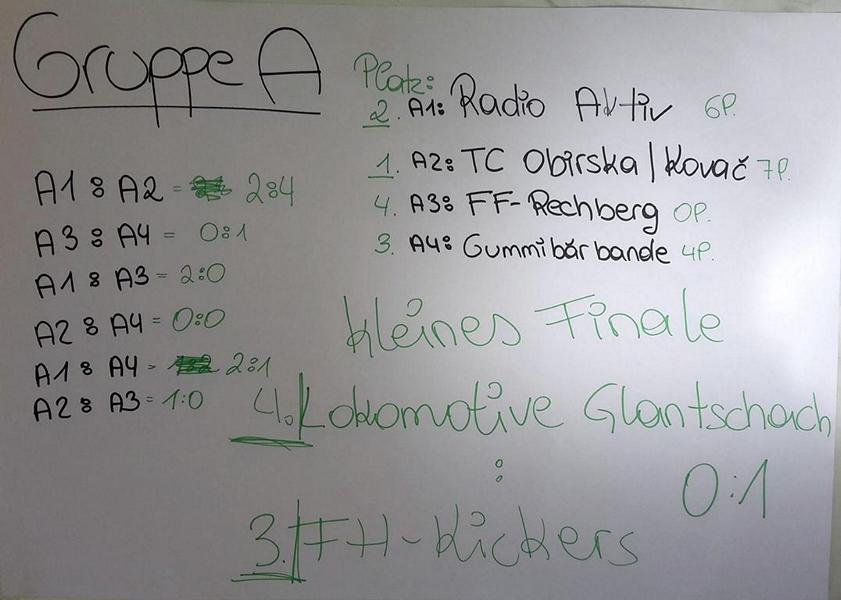 Gruppe A
A1 : A2 = 2:4
A3 : A4 = 0:1
A1 : A3 = 2:0
A2 : A4 = 0:0
A1 : A4 - 2:1
A2 : A3 = 1:0
Platz:
2. A1: Radio Aktiv 6P.
1. A2: TC Obirska/Kovač 7P.
4. A3: FF-Rechberg 0P.
3. A4: Gummibärbande 4P.
kleines Finale
4. Lokomotive Glantschach
:
0:1
3. FH-Kickers